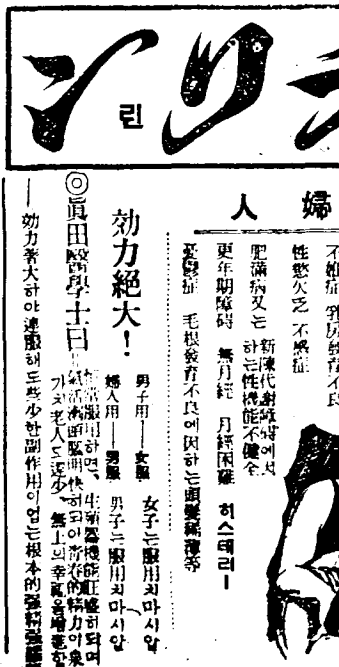 リン
린
婦人
不妊症 乳房發育不良
性慾欠乏 不感症
肥滿病又는 新陳代謝障碍에因
하는性機能不健全
更年期障碍 無月經 月經困難 히스테리ー
憂鬱症 毛根發育不良에因하는頭髮稀薄等
効力絶大!
男子用——女服 女子는服用치마시압
婦人用——男服 男子는服用치마시압
◎眞田醫學士曰
服用하면、生殖器機能旺盛히되며
氣活潑頭腦明快히되야靑春的精力이泉
가치老人도還少、無上의幸福을增進한
——効力著大하야連服해도些少한副作用이업는根本的强精强腦